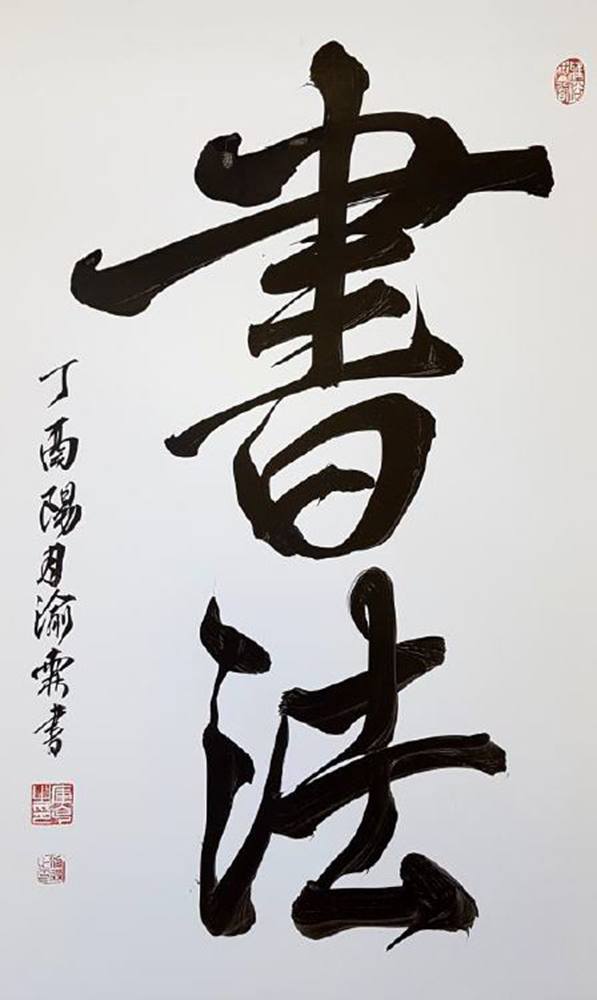 書法
丁酉陽月渝霖書